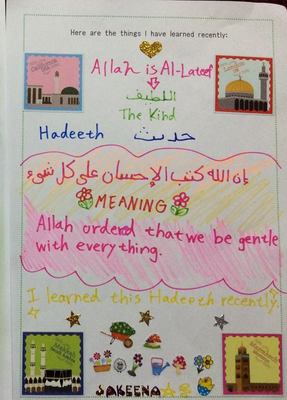 Here are the things I have learned recently:
Allah is Al-Lateef
اللطيف
The Kind
Hadeeth حديث
إن الله كتب الإحسان على كل شيء
MEANING
Allah orderd that we be gentle
with everything.
I learned this Hadeeth recently.
SAKEENA